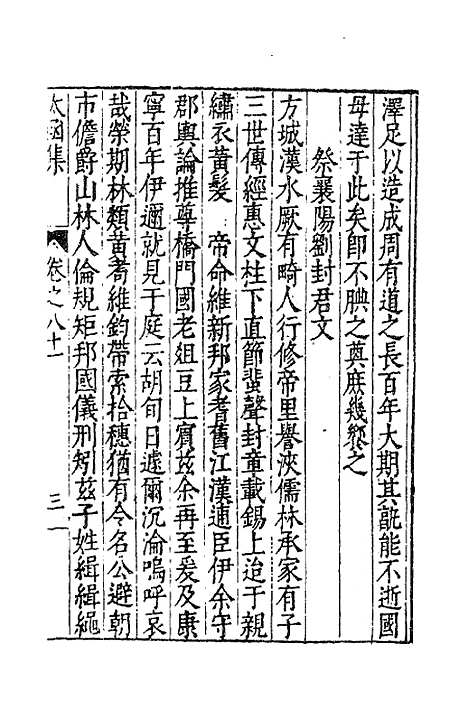 澤足以造成周有道之長百年大期其誰能不逝國
母達于此矣即不腆之奠庶幾饗之
祭襄陽劉封君文
方城漢水厥有畸人行修帝里譽浹儒林承家有子
三世傳經惠文柱下直節蜚聲封章載錫上迨于親
繡衣黃髮 帝命維新邦家耆舊江漢逋臣伊余守
郡輿論推尊橋門國老俎豆上賓茲余再至爰及康
寧百年伊邇就見于庭云胡旬日遽爾沉淪嗚呼哀
哉榮期林類黃耇維鈞帶索拾穗猶有令名公避朝
市儋爵山林人倫規矩邦國儀刑矧茲子姓緝緝繩
太函集 卷之八十一 三